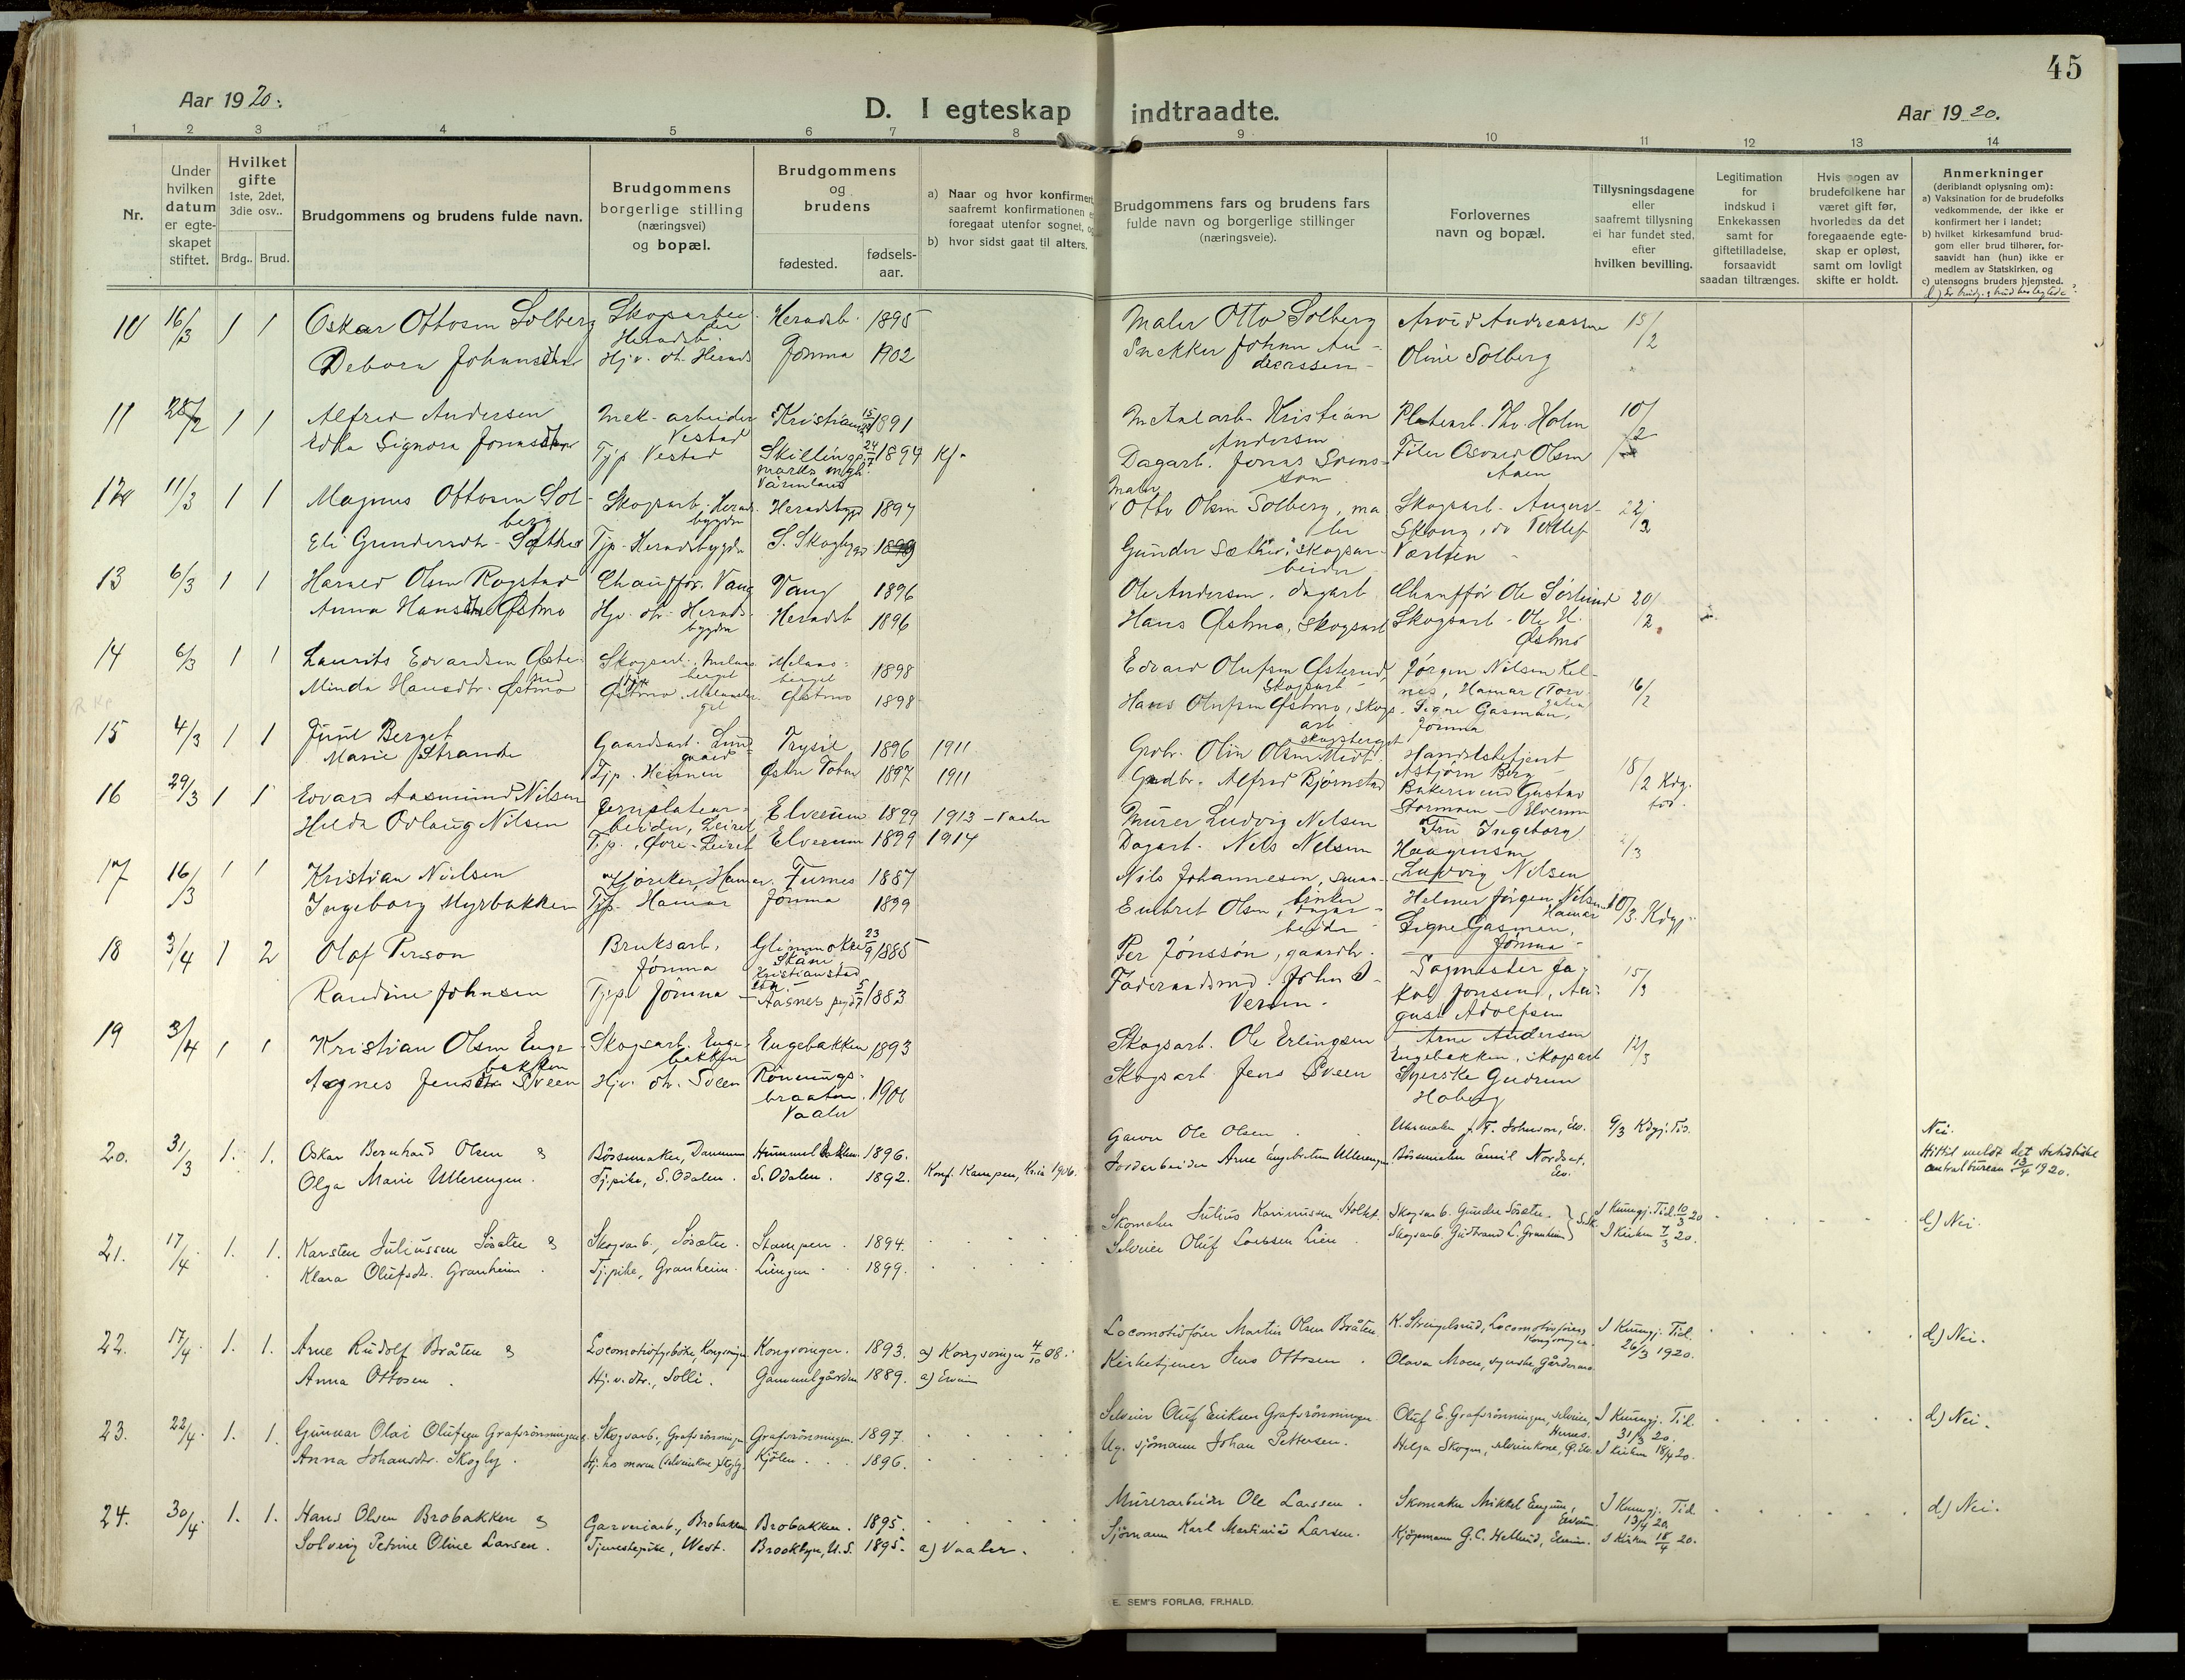 45
Aar 1920.
D. I egteskap indtraadte.
Aar 1920.
1 2 3 4 5 6 7 8 9 10 11 12 13 14
Nr.
Under hvilken datum er egte-skapet stiftet.
Hvilket gifte
1ste, 2det, 3die osv..
Brdg.. Brud.
Brudgommens og brudens fulde navn.
Brudgommens borgerlige stilling (næringsvei) og bopæl.
Brudgommens og brudens
fødested.
fødsels-aar.
a) Naar og hvor konfirmert
saafremt konfirmationen
foregaat utenfor sognet, og
b) hvor sidst gaat til alters.
Brudgommens fars og brudens fars
fulde navn og borgerlige stillinger
(næringsveie).
Forlovernes
navn og bopæl.
Tillysningsdagene
eller
saafremt tillysning
ei har fundet sted,
efter
hvilken bevilling.
Legitimation
for
indskud i
Enkekassen
samt for
giftetilladelse,
forsaavidt
saadan tiltrænges.
Hvis nogen av
brudefolkene har
været gift før,
hvorledes da det
foregaaende egte-
skap er opløst,
samt om lovligt
skifte er holdt.
Anmerkninger
(deriblandt oplysning om):
a) Vaksination for de brudefolks
vedkommende, der ikke er
konfirmert her i landet;
b) hvilket kirkesamfund brud-
gom eller brud tilhører, for-
saavidt han (hun) ikke er
medlem av Statskirken, og
c) utensogns bruders hjemsted.
10 16/3 1 1 Oskar Ottosen Solberg Skogsarbei-der Heradsb. Heradsb. 1895 Maler Otto Solberg Arvid Andreassen 15/2
Debora Johansdtr Hjv. dt. Herads Jømna 1902 Snekker Johan An-dreassen Oline Solberg
11 28/2 1 1 Alfred Andersen Mek. arbeider Vestad Kristiania 1891 Metalarb. Kristian Andersen Platearb. Thv. Holm 10/2
Edla Signora Jonasdtr Tjp Vestad Skillings-marks mgh. Värmland 24/7 1894 Kf. Dagarb. Jonas Svens-son Filer Osvard Olsen
12 11/3 1 1 Magnus Ottosen Sol-berg Skogsarb. Herads-bygden Heradsbygd 1897 Maler Otto Olsen Solberg, ma-ler Skogsarb. August Skaug, 22/2
Eli Gundersdtr. Sæther Tjp. Heradsbygden S. Skogbygd Gunder Sæther, skogsar-beider
13 6/3 1 1 Harald Olsen Rogstad Chauffør. Vang Vang 1896 Ole Andersen, dagarb. Chauffør Ole Sørlund 20/2
Anna Hansdtr Østmo Hjv. dt. Herads-bygden Heradsb 1896 Hans Østmo, skogsarb Skogsarb. Ole H. Østmo
14 6/3 1 1 Laurits Edvardsen Øste-rud Skogsarb. Melaas-berget Melaas-berget 1898 Edvard Olufsen Østerud, skogsarb Jørgen Nilsen Kel-nes, Hamar 16/2
Minda Hansdtr. Østmo Østmo, Østmo 1898 Hans Olufsen Østmo, skogs-arb. Signe Gasman, Jømna
15 4/3 1 1 Juul Berget Gaardsarb. Trysil 1896 1911 Grdbr. Olin Olsen Handelsbetjent Asbjørn Berg 18/2 Kdg.
Marie Strande Tjp. Heinnen Østre Toten 1897 1911 Gardbr. Alfred Bjørnstad Bakersvend Gustav Stormoen Elverum
16 29/3 1 1 Edvard Aasmund Nilsen Jernplatear-beider, Leiret Elverum 1899 1913 - Vaaler Murer Ludvig Nilsen Fru Ingeborg Haagensen
Hilda Odlaug Nilsen Tjp. Øvre-Leiret Elverum 1899 1914 Dagarb. Nils Nilsen Ludvig Nilsen
17 16/3 1 1 Kristian Nielsen Kjøreker, Hamar. Furnes 1887 Nils Johannesen, Helmer Jørgen Nilsen Hamar 10/3. Kdgj.
Ingeborg Myrbakken Tjp. Hamar Jømna 1899 Embret Olsen, dagar-beider Signe Gasman, Jømna
18 3/4 1 2 Olof Person Bruksarb. Jömna Glimmåkra Skåne Kristianstad 23/9 1885 Per Jönssón, gaardbr. Sagmester Ja-kob Jonsend, Au-gust Adolfsen 15/3
Randine Johnsen Tjp. Jömna Aasnes 5/7 1883 Føderaadsmd. John
19 3/4 1 1 Kristian Olsen Enge-bakken Skogsarb. Enge-bakken Engebakken 1893 Skogsarb. Ole Erlingsen Arne Andersen Engebakken, skogsarb 12/3
Agnes Jensdtr Sveen Hjv. dt. Sveen Rönnings-braaten Vaaler 1901 Skogsarb Jens Sveen Syerske Gudrun Hoberg
20. 31/3 1. 1. Oskar Bernhard Olsen & Bössemaker, Hummelbakken 1896. Garver Ole Olsen Urmaker J. F. Johnson, Elv. 9/3 Kdgj. Tid. Nei.
Olga Marie Ullerengen. Tj.pike, S. Odalen. S. Odalen. 1892. Konf. Kampen, Kria 1906. Jordarbeider Arne Engebretsen Ullerengen Bössemaker Emil Nordset, Elv. Hittil meldt det statistiske centralbureau 13/4 1920.
21. 17/4. 1. 1. Karsten Juliussen Sösæter & Skogsarb., Sösæter. Stampen. 1894. Skomaker Julius Karinussen Holtet. Skogsarb. Gunder Sösæter. I Kungj. Tid. 10/3 20 d) Nei.
Klara Olufsdtr. Granheim. Tj.pike, Granheim. Liengen 1899. Selveier Oluf Larsen Lien Skogsarb. Gudbrand L. Granheim I Kirken 7/3 20.
22. 17/4. 1. 1. Arne Rudolf Bråten & Locomotivfyrböter, Kongsvinger Kongsvinger. 1893. a) Kongsvinger 4/10 08. Locomotivfører Martin Olsen Bråten. K. Strengelsrud, Locomotivfører, Kongsvinger. I Kungj. Tid. 26/3 1920. d) Nei.
Anna Ottosen. Hj.v. dtr., Solli. Gammelgården 1889. a) Elverum Kirketjener Jens Ottosen. Olava Moen, syerske,
23. 22/4. 1. 1. Gunnar Olai Olufsen Grafsrönningen & Skogsarb., Grafsrönningen Grafsrönningen. 1897. Selveier Oluf Eriksen Grafsrönningen. Oluf E. Grafsrönningen, selveier, Hernes. I Kungj. Tid. 31/3 20. d) Nei.
Anna Johansdtr. Skogly. Hj. hos moren (selveierkone) Skogly. Kjölen. 1896. Ug. sjömann Johan Pettersen. Helga Skogen, selveierkone, I Kirken 18/4 20.
24. 30/4. 1. 1. Hans Olsen Brobakken & Garveriarb., Brobakken Brobakken. 1895. Murerarbeider Ole Larssen. Skomaker Mikkel Engum, Elverum. I Kungj. Tid. 13/4 20. d) Nei.
Solveig Petrine Oline Larsen. Tjenestepike, West. Brooklyn, U.S. 1895. a) Vaaler. Sjömann Karl Martinius Larsen. Kjöpmann G. C. Hellund, Elverum. I Kirken 18/4 20.
E. SEM'S FORLAG, FR.HALD.